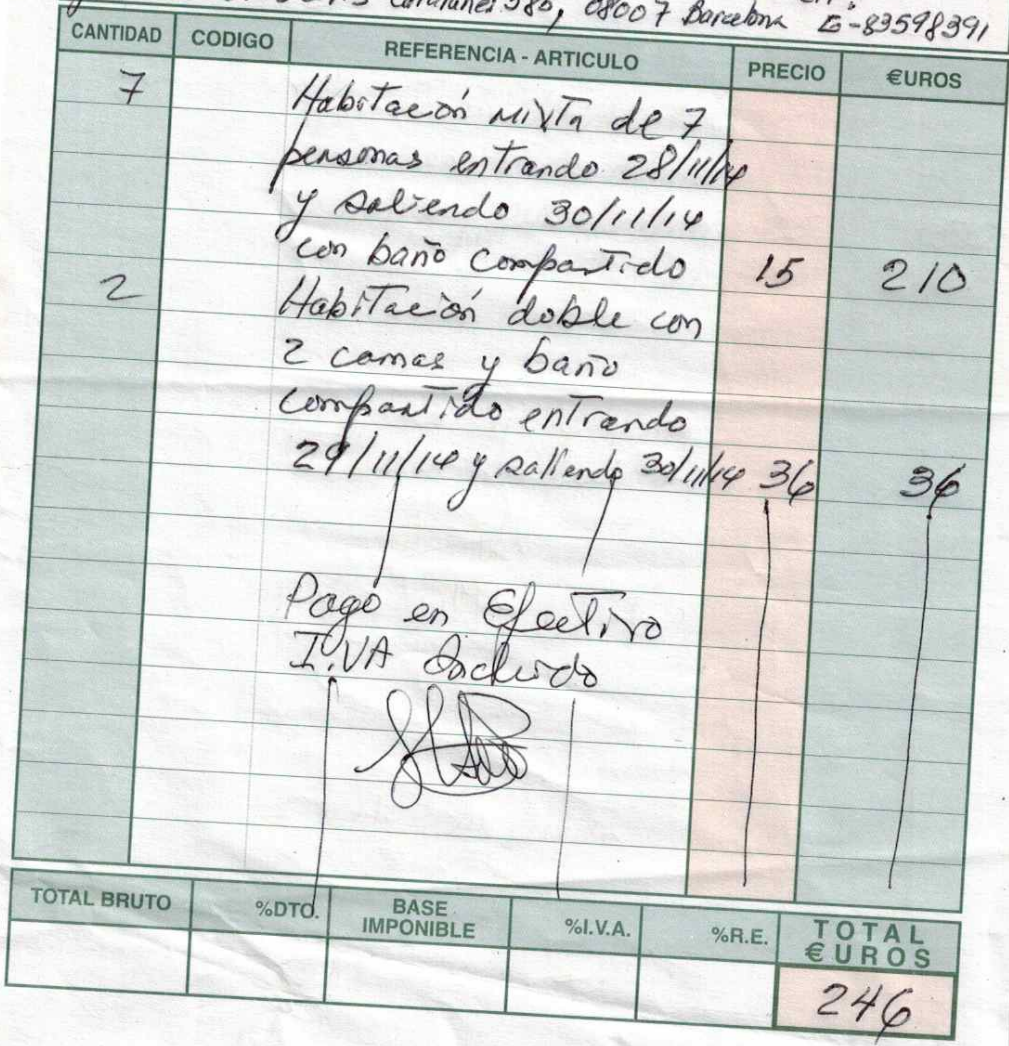 Catalanes 580, 08007 Barcelona G-83598391
CANTIDAD CODIGO REFERENCIA - ARTICULO PRECIO €UROS
7 Habitación mixta de 7
personas entrando 28/11/14
y saliendo 30/11/14
con baño compartido 15 210
2 Habitación doble con
2 camas y baño
compartido entrando
29/11/14 y saliendo 30/11/14 36 36
Pago en Efectivo
I.VA Incluido
TOTAL BRUTO %DTO. BASE IMPONIBLE %I.V.A. %R.E. TOTAL €UROS
246